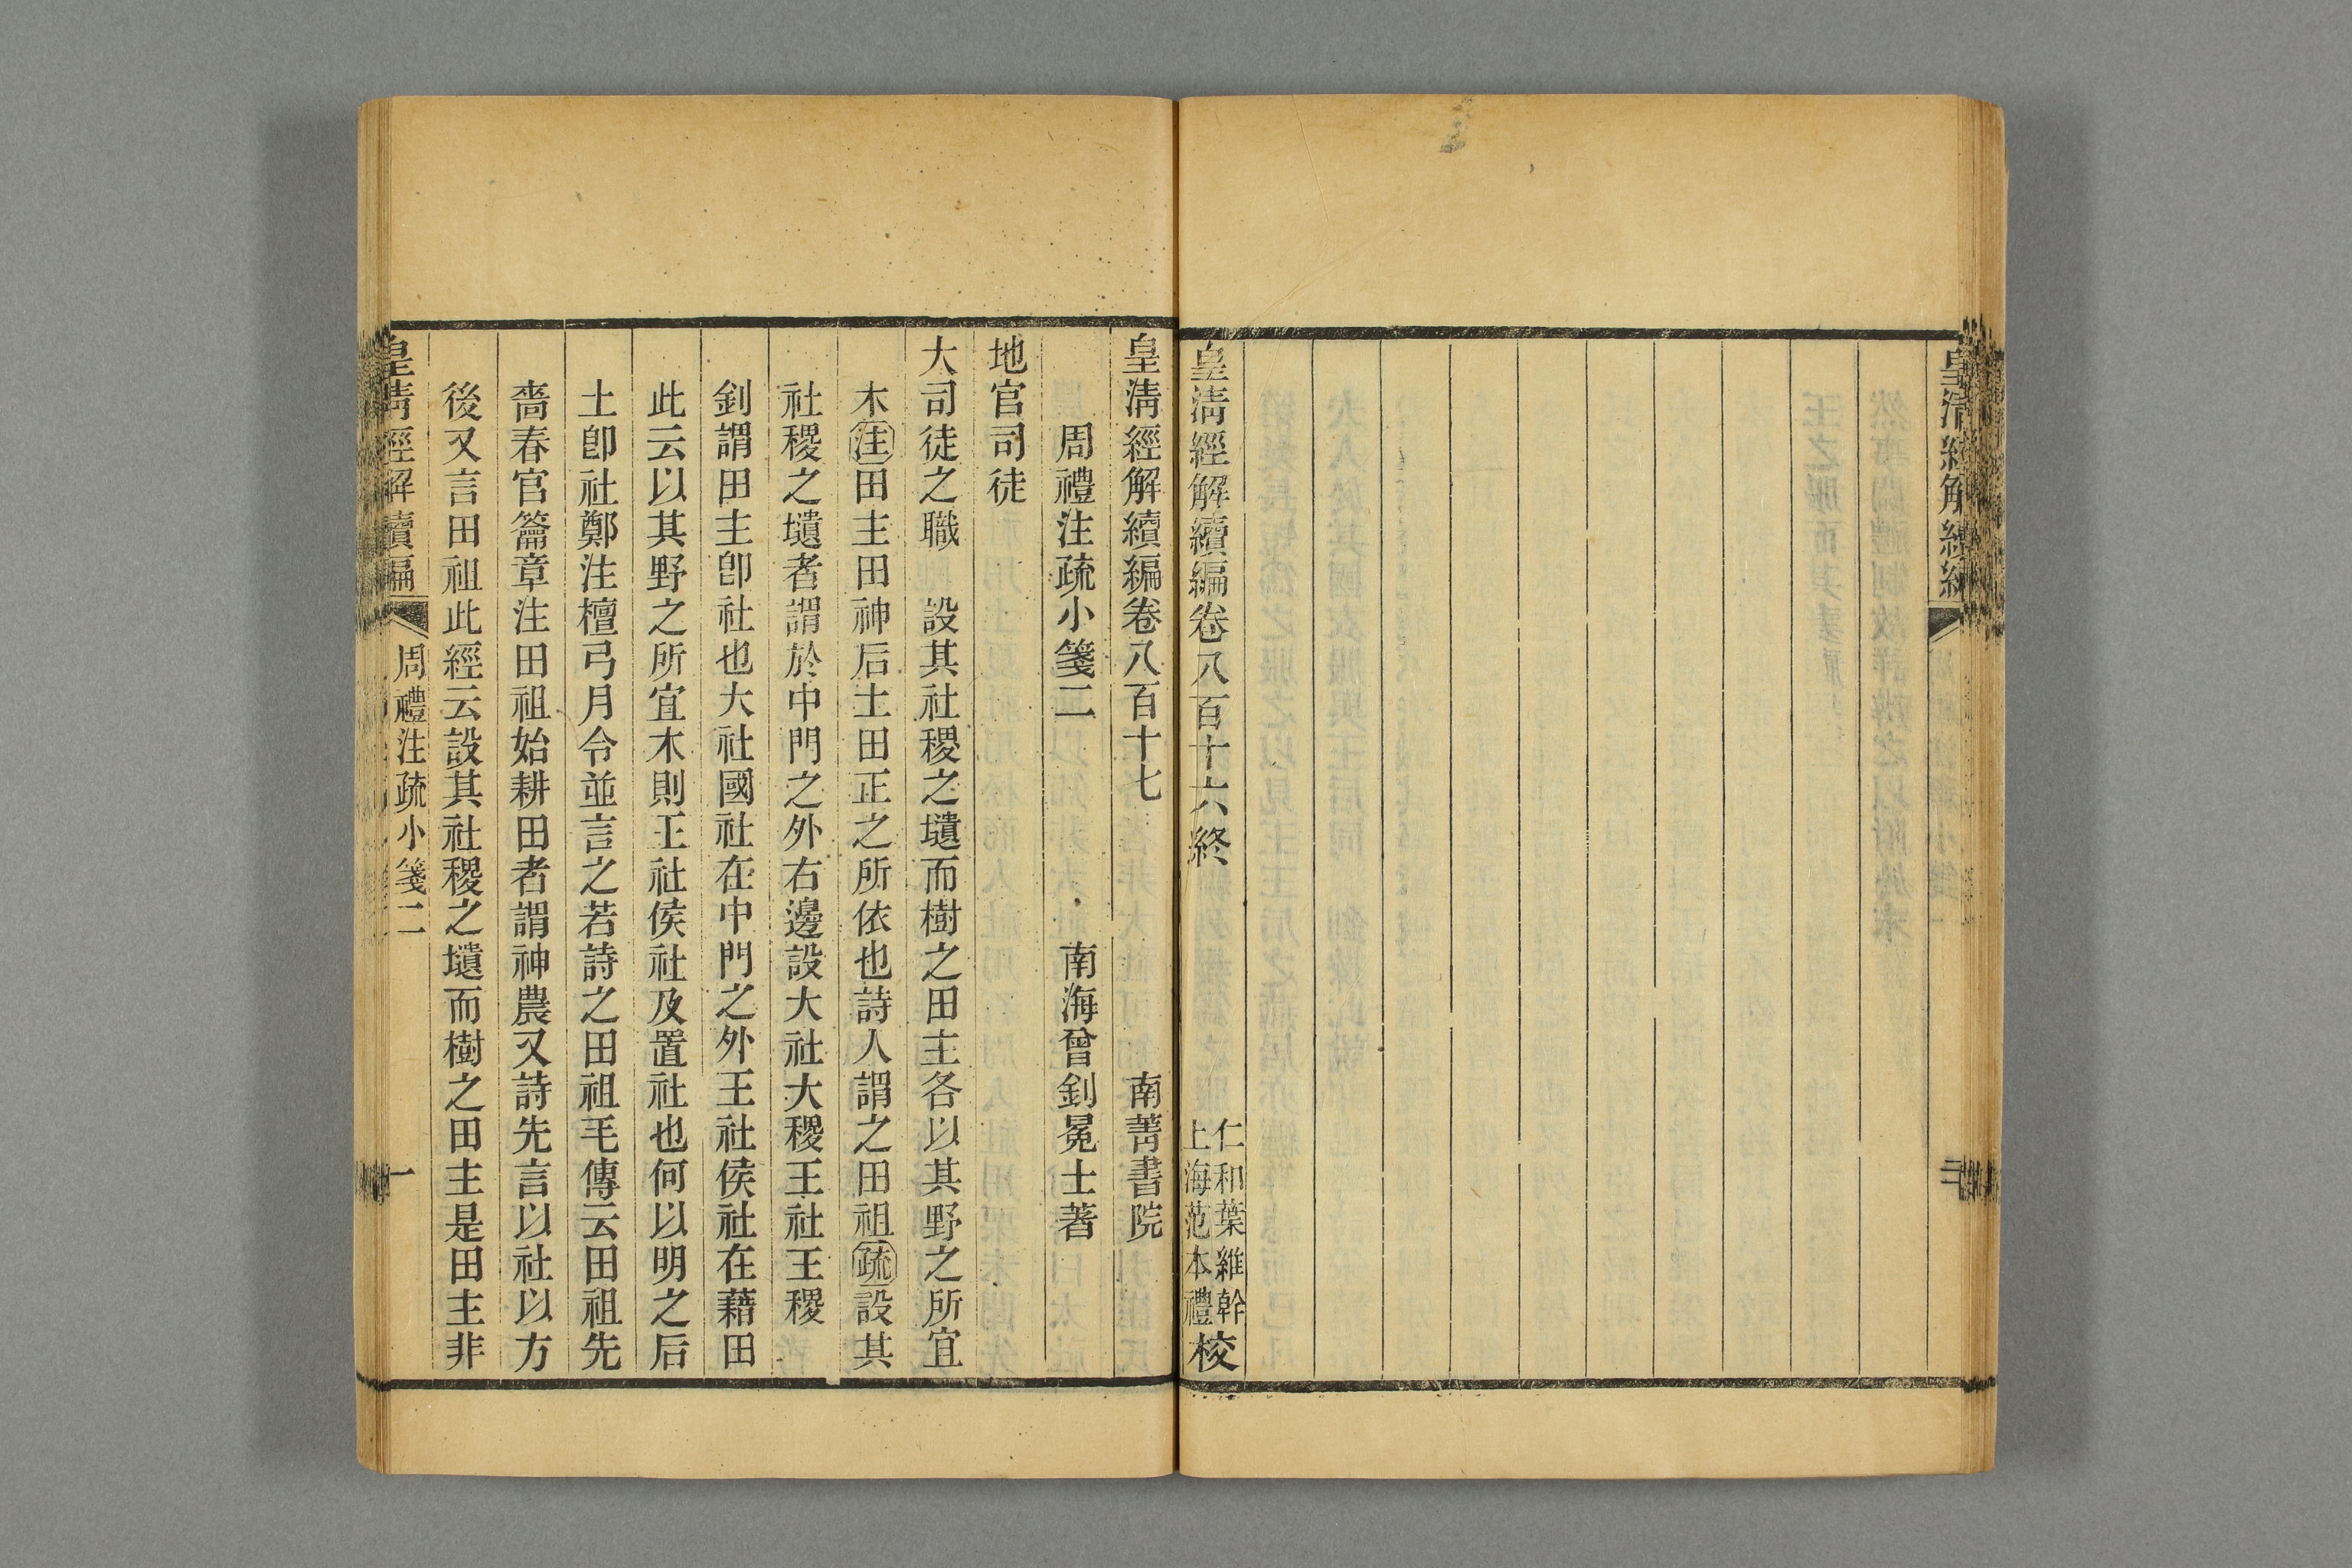 皇清經解續編卷八百十六終
仁和葉維幹
上海范本禮
校
皇清經解續編卷八百十七
南菁書院
周禮注疏小箋二
南海曾釗冕士著
地官司徒
大司徒之職　設其社稷之壝而樹之田主各以其野之所宜
木注田主田神后土田正之所依也詩人謂之田祖疏設其
社稷之壝者謂於中門之外右邊設大社大稷王社王稷
釗謂田主卽社也大社國社在中門之外王社侯社在藉田
此云以其野之所宜木則王社侯社及置社也何以明之后
土卽社鄭注檀弓月令並言之若詩之田祖毛傳云田祖先
嗇春官籥章注田祖始耕田者謂神農又詩先言以社以方
後又言田祖此經云設其社稷之壝而樹之田主是田主非
皇清經解續編
周禮注疏小箋二
一